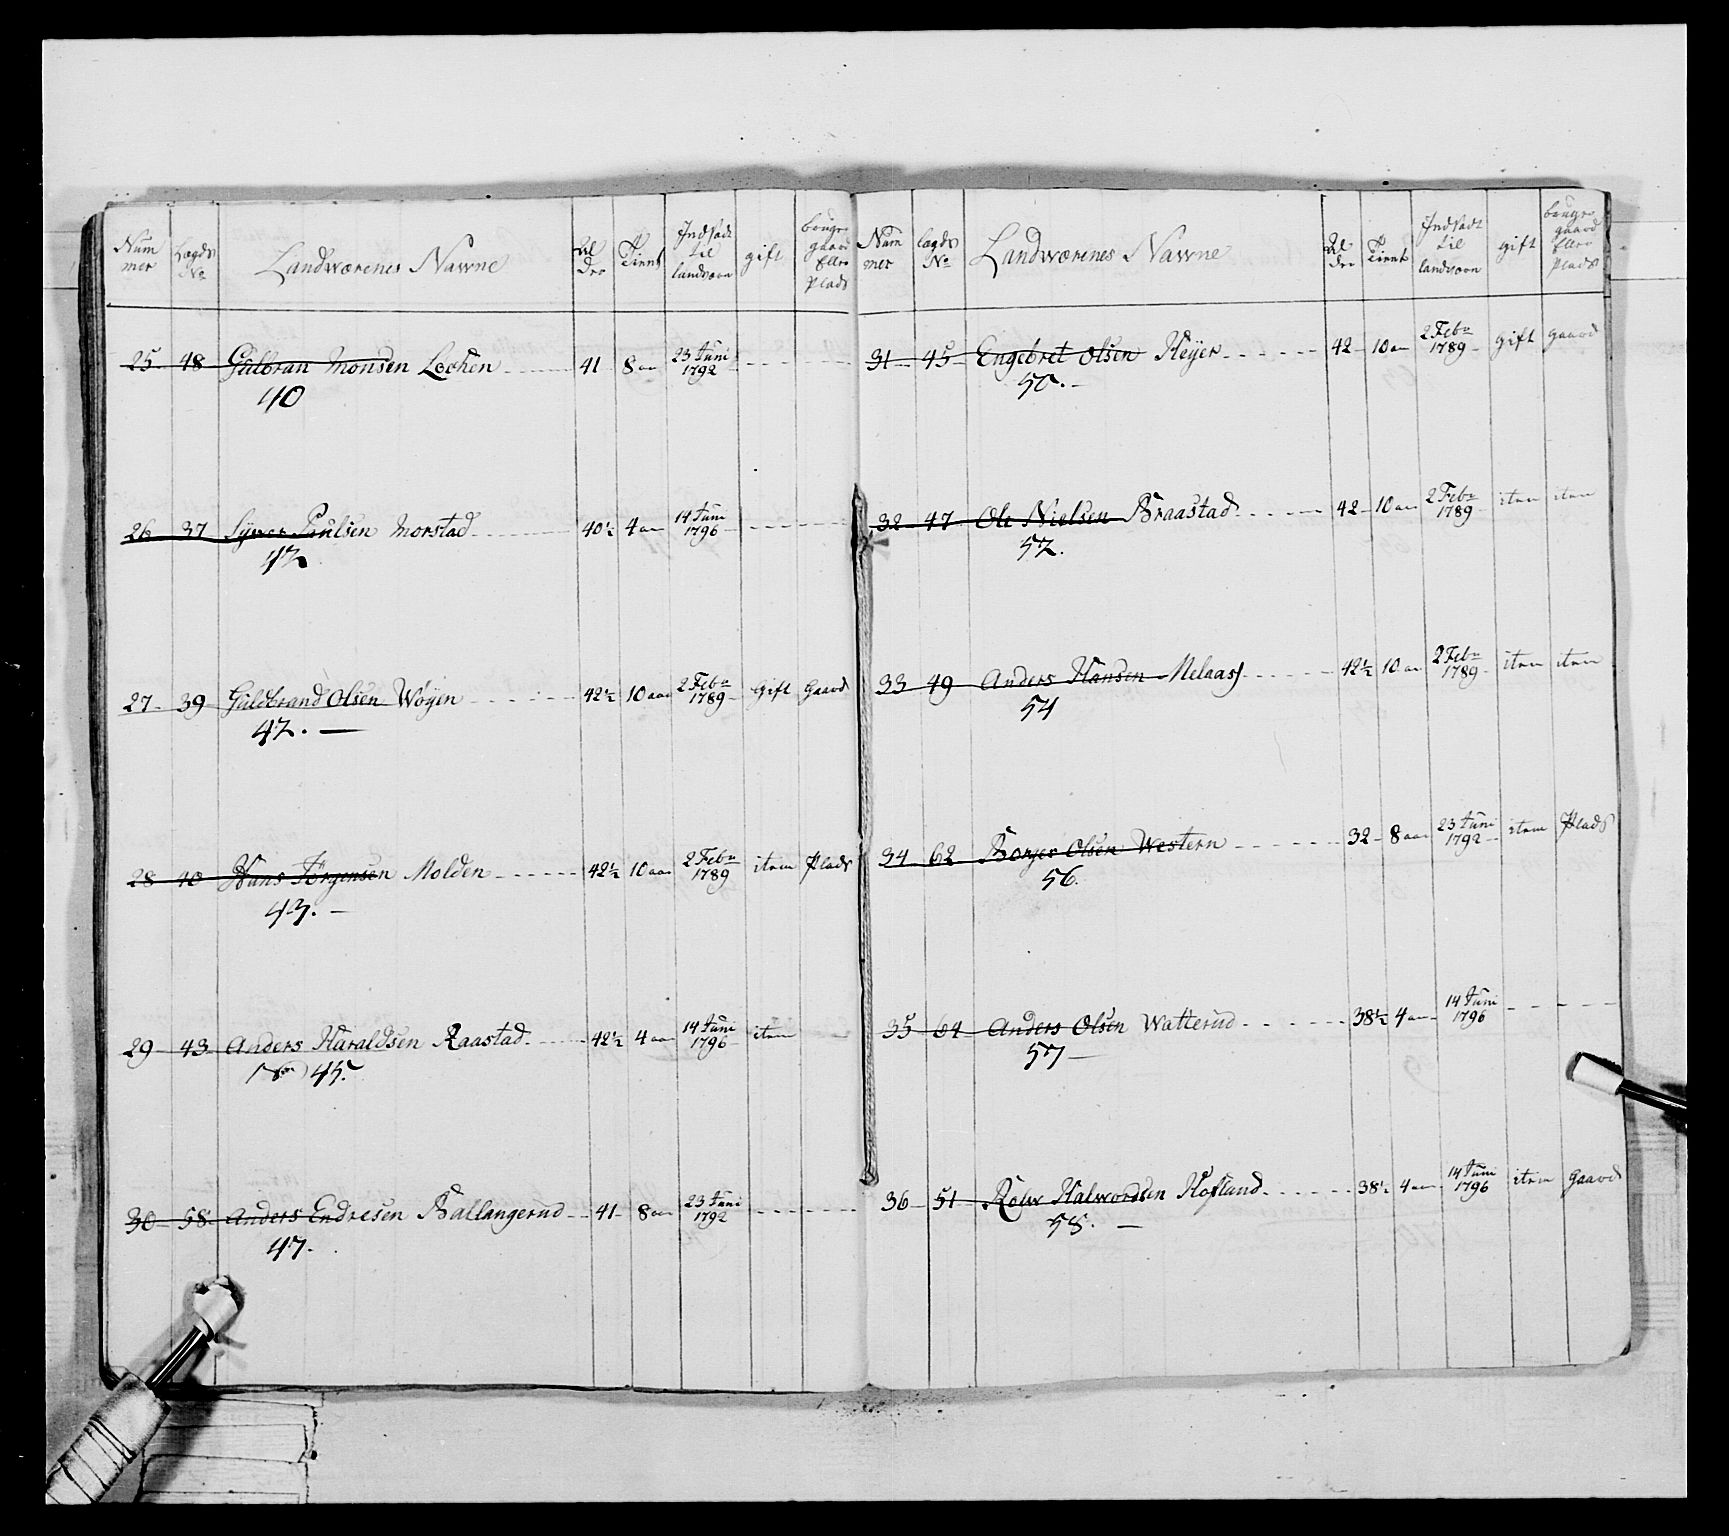 Num mer | Lagds No | Landværenes Nawne | Al der | Tient | Indsadt til landværn | gift | bruger gaard Eller Plads
25 48 Gulbran Monsen Lochen 41 8 aar 23 Juni 1792
40
26 37 Syver Paulsen Morstad 40½ 4 aar 14 Juni 1796
42
27 39 Guldbrand Olsen Wøyen 42½ 10 aar 2 Febr 1789 Gift Gaard
42.
28 40 Hans Jørgensen Molden 42½ 10 aar 2 Febr 1789 item Plads
43.
29 43 Anders Haraldsen Raastad 42½ 4 aar 14 Juni 1796 item
45.
30 58 Anders Endresen Ballangerud 41 8 aar 23 Juni 1792
47.
Num mer | lagds No | Landwærenes Nawne | Al der | Tient | Indsadt til landværn | gift | bruger gaard Eller Plads
31 45 Engebret Olsen Heyer 42 10 aar 2 Febr 1789 gift gaard
50.
32 47 Ole Nielsen Braastad 42 10 aar 2 Febr 1789 item item
52.
33 49 Anders Hansen Melaas 42½ 10 aar 2 Febr 1789 item item
54
34 62 Borger Olsen Western 32 8 aar 23 Juni 1792 item Plads
56.
35 64 Anders Olsen Watterud 38½ 4 aar 14 Juni 1796
57
36 51 Rolw Halwordsen Hofland 38½ 4 aar 14 Juni 1796 item Gaard
58.